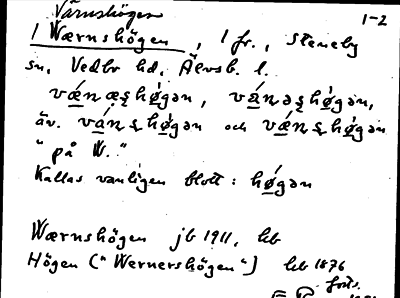 Värnshögen
1-2
1 Wærnshögen, 1 fr., Steneby
sn, Vedbo hd, Älvsb. l.
vǽn̨æʂhǿ̨gən, vá̱n̨əʂhǿ̨gən,
äv. vá̱n̨ʂhǿ̨gən och vǽn̨ʂhǿ̨gən
"på W."
Kallas vanligen blott: hǿ̨gən
Wærnshögen jb 1911, kb
Högen ("Wernershögen") kb 1876
forts.